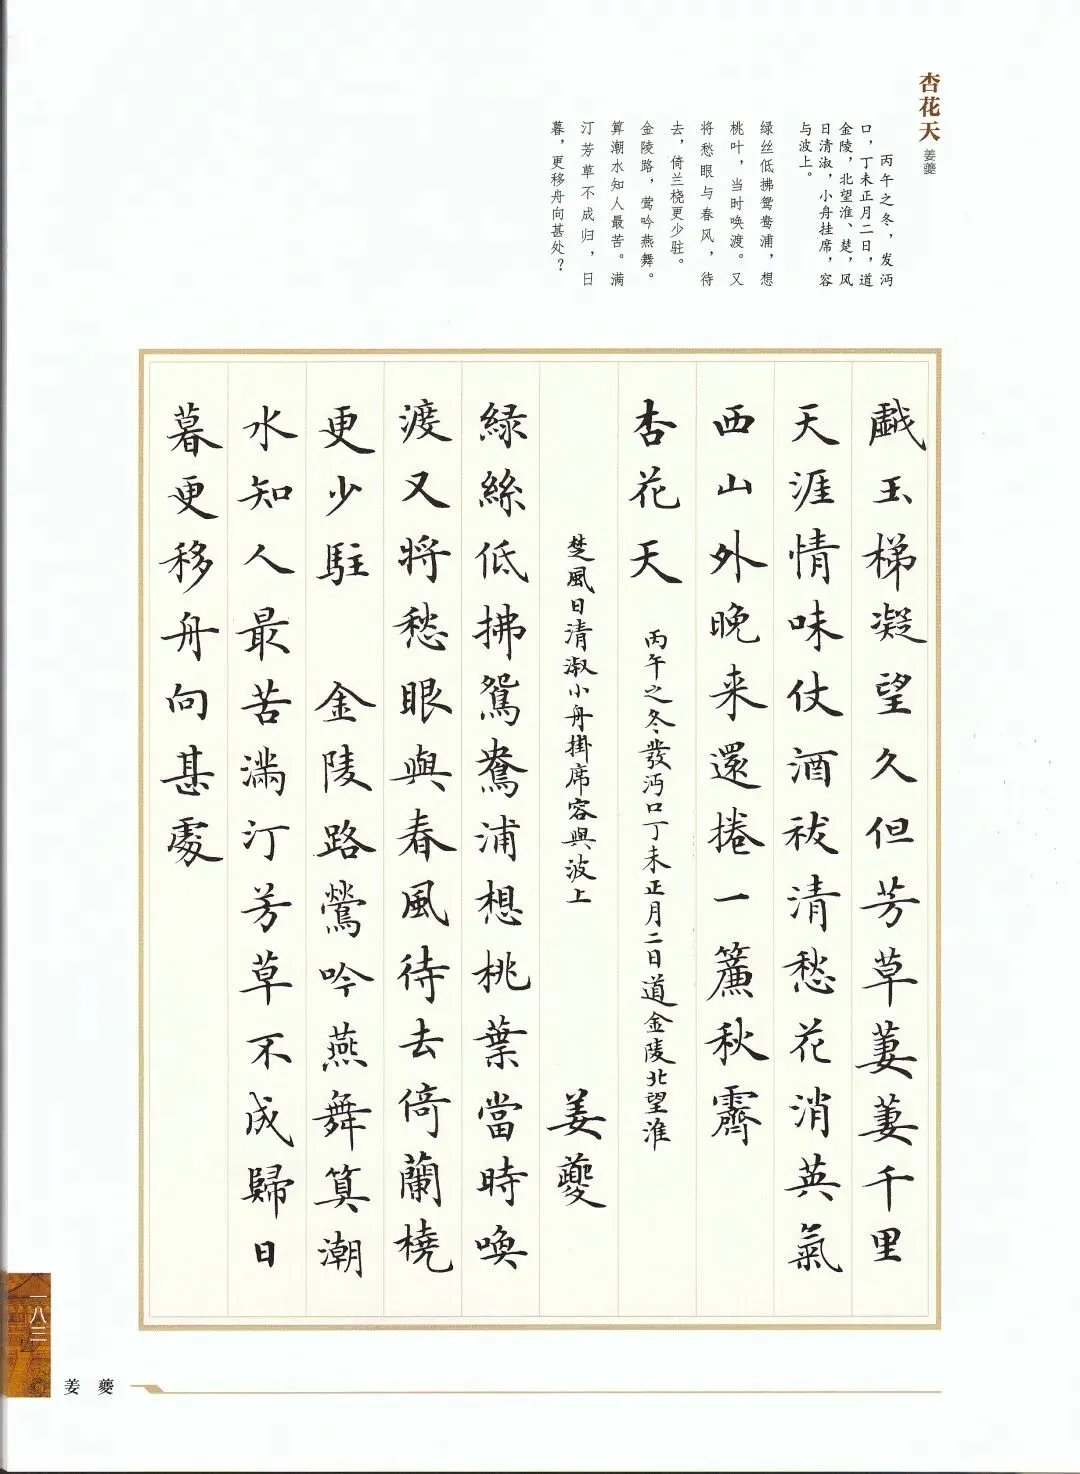 杏花天
姜夔
丙午之冬，发沔
口，丁未正月二日，道
金陵，北望淮、楚，风
日清淑，小舟挂席，容
与波上。
绿丝低拂鸳鸯浦，想
桃叶，当时唤渡。又
将愁眼与春风，待
去，倚兰桡更少驻。
金陵路，莺吟燕舞。
算潮水知人最苦。满
汀芳草不成归，日
暮，更移舟向甚处？
戲玉梯凝望久但芳草萋萋千里
天涯情味仗酒祓清愁花消英氣
西山外晚来還捲一簾秋霽
杏花天 丙午之冬發沔口丁未正月二日道金陵北望淮
楚風日清淑小舟掛席容與波上 姜夔
緑絲低拂鴛鴦浦想桃葉當時喚
渡又将愁眼與春風待去倚蘭橈
更少駐 金陵路鶯吟燕舞算潮
水知人最苦滿汀芳草不成歸日
暮更移舟向甚處
一八三
姜夔